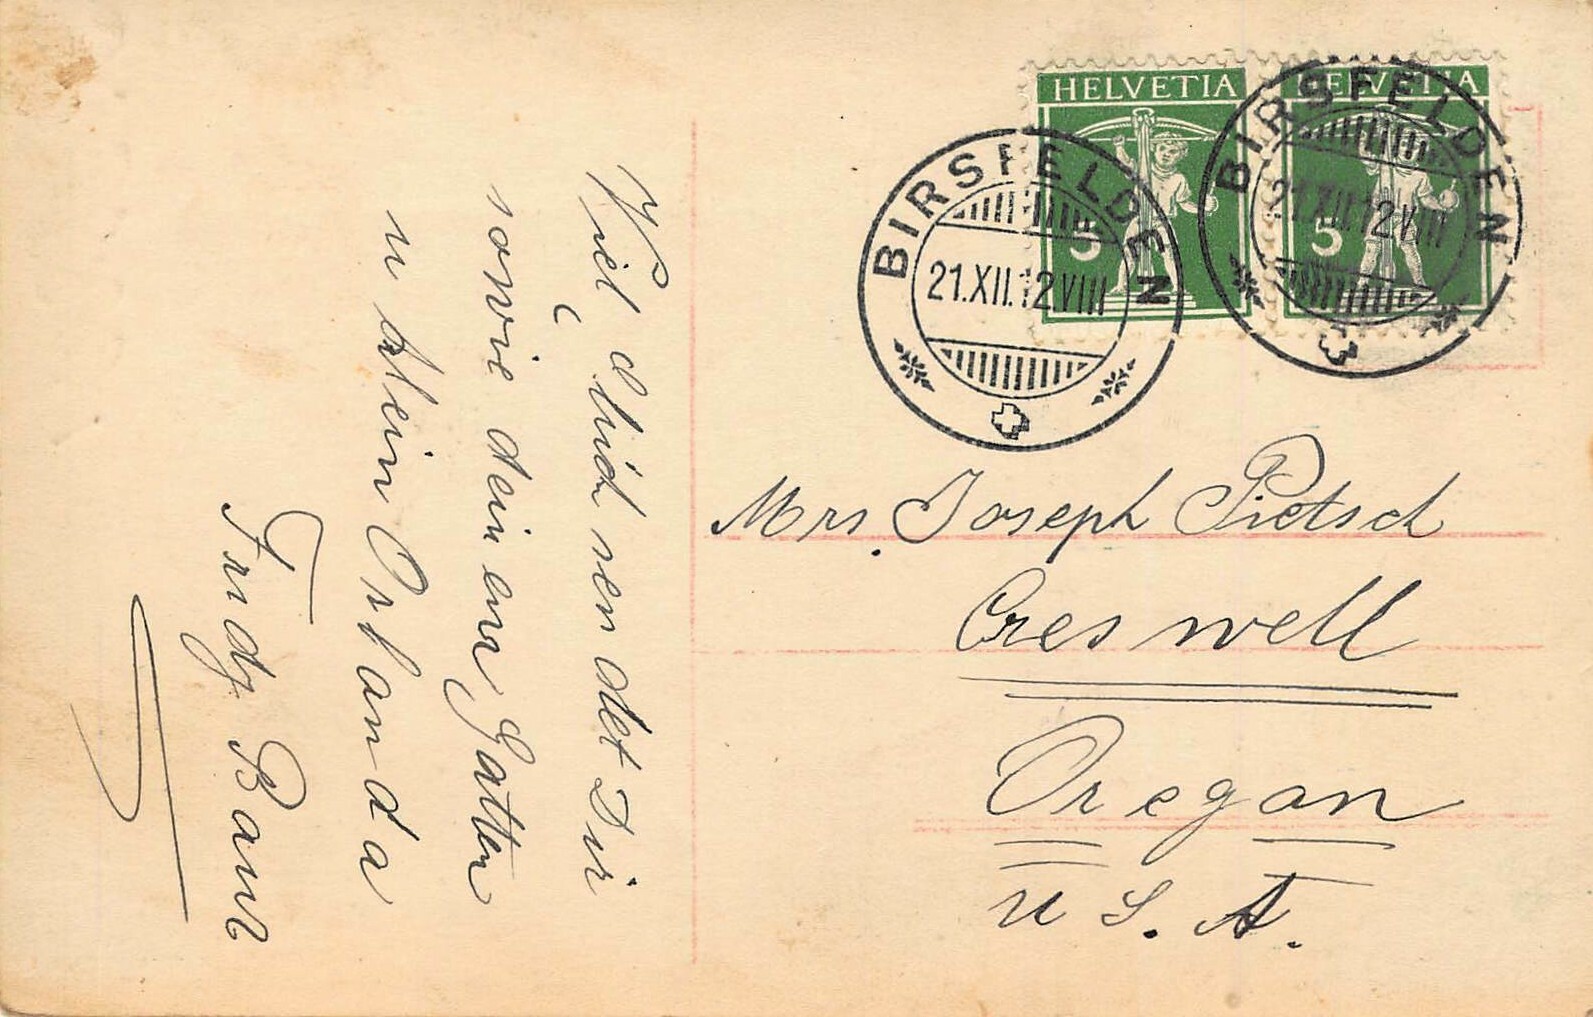 HELVETIA
5
HELVETIA
5
BIRSFELDEN
21.XII.12.VIII
BIRSFELDEN
21.XII.12.VIII
Viel Glück sendet Dir
sowie deinem Gatten
u klein Orlanda
Baur
Mrs. Joseph Pietsch
Creswell
Oregan
U S. A.